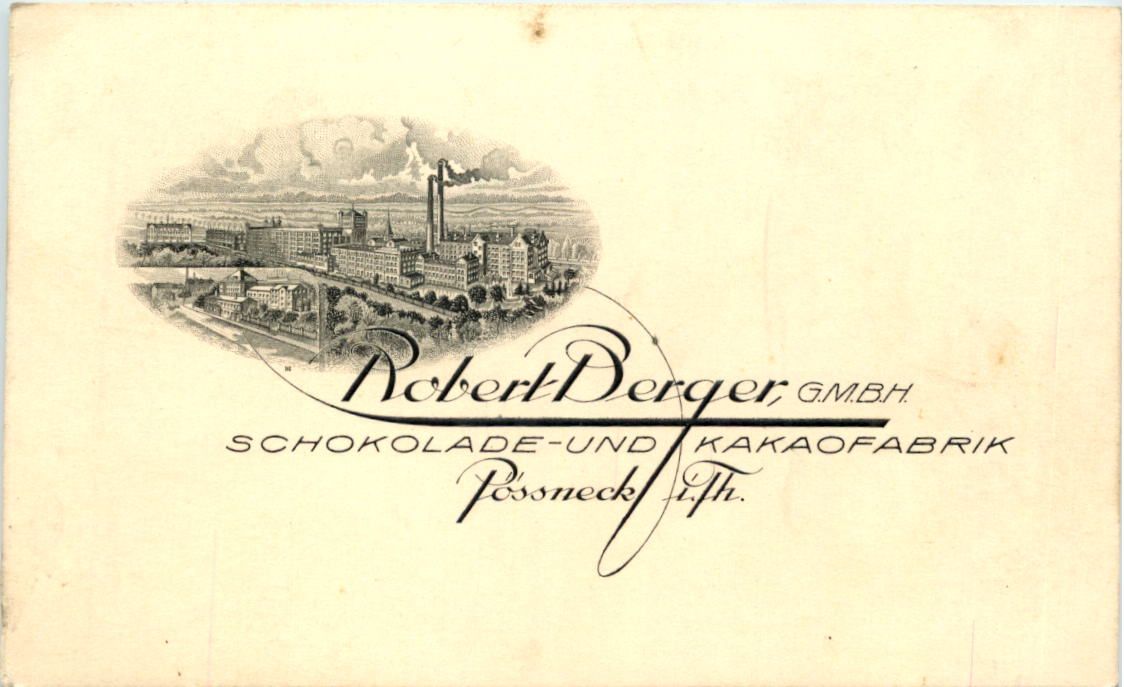 Robert Berger, G.M.B.H.
SCHOKOLADE-UND KAKAOFABRIK
Pössneck i. Th.